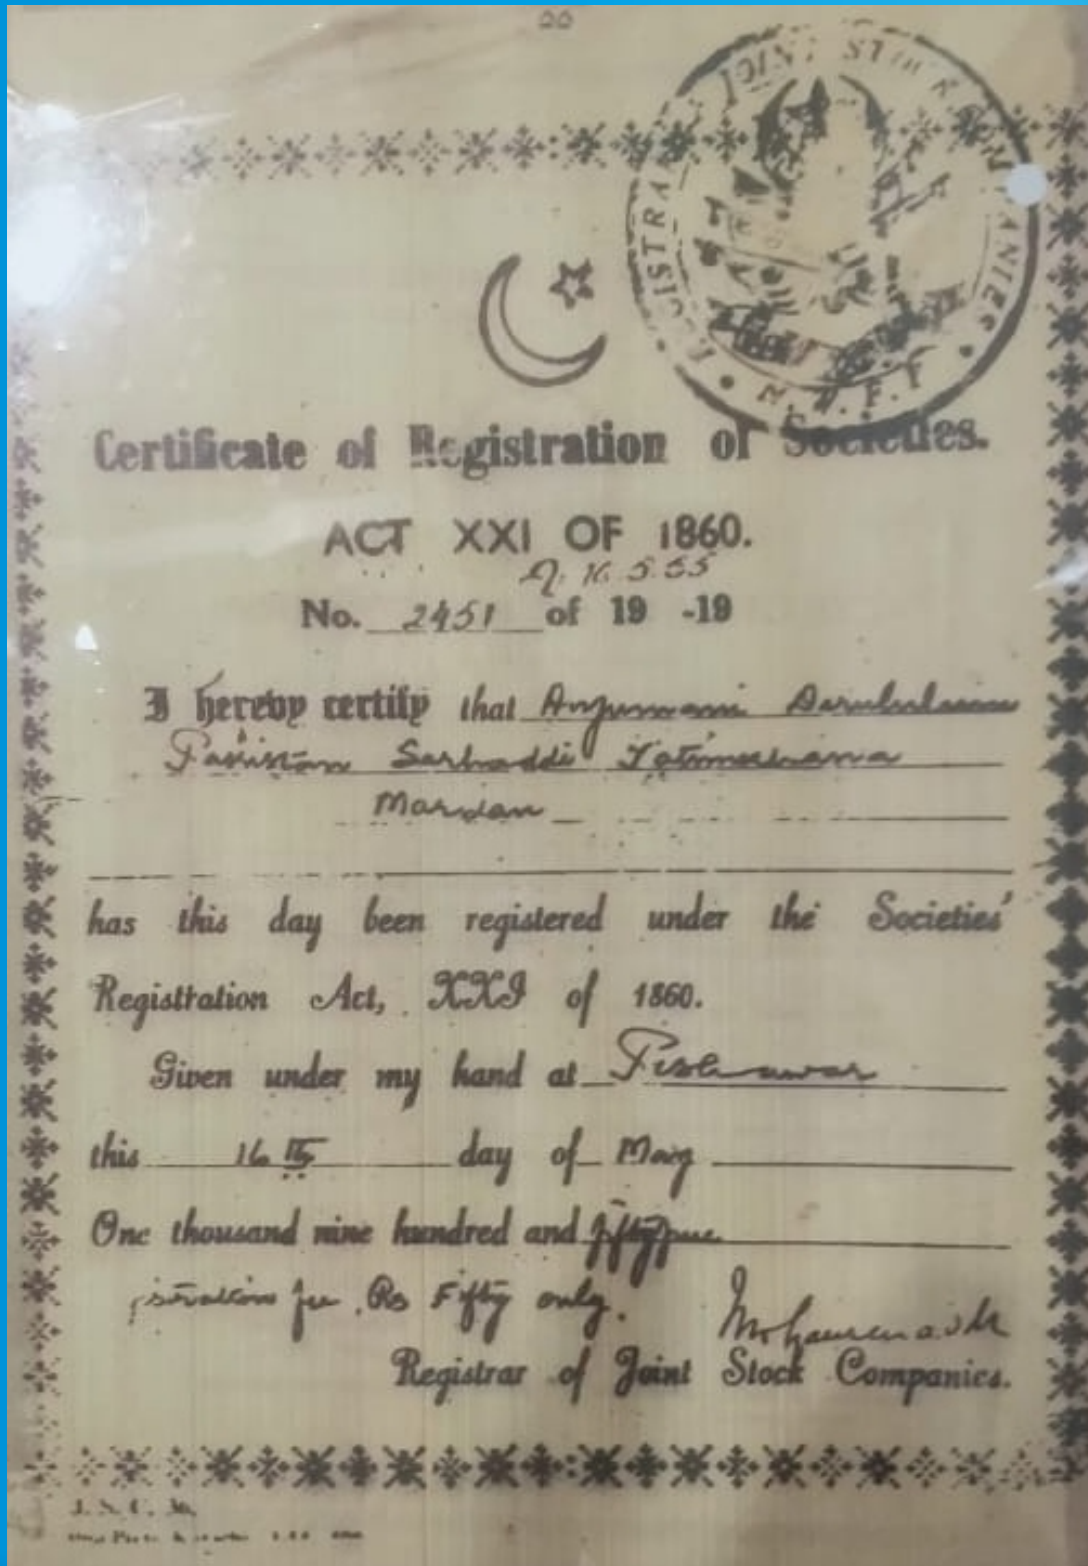 REGISTRAR JOINT STOCK COMPANIES
N.W.F.P
Certificate of Registration of Societies.
ACT XXI OF 1860.
16.5.55
No. 2451 of 19 -19
I hereby certify that Anjumani
Pakistan Sarhaddi Yatimkhana
Mardan
has this day been registered under the Societies'
Registration Act, XXI of 1860.
Given under my hand at Peshawar
this 16th day of May
One thousand nine hundred and fifty five
fee Rs Fifty only.
Registrar of Joint Stock Companies.
J. S. C.